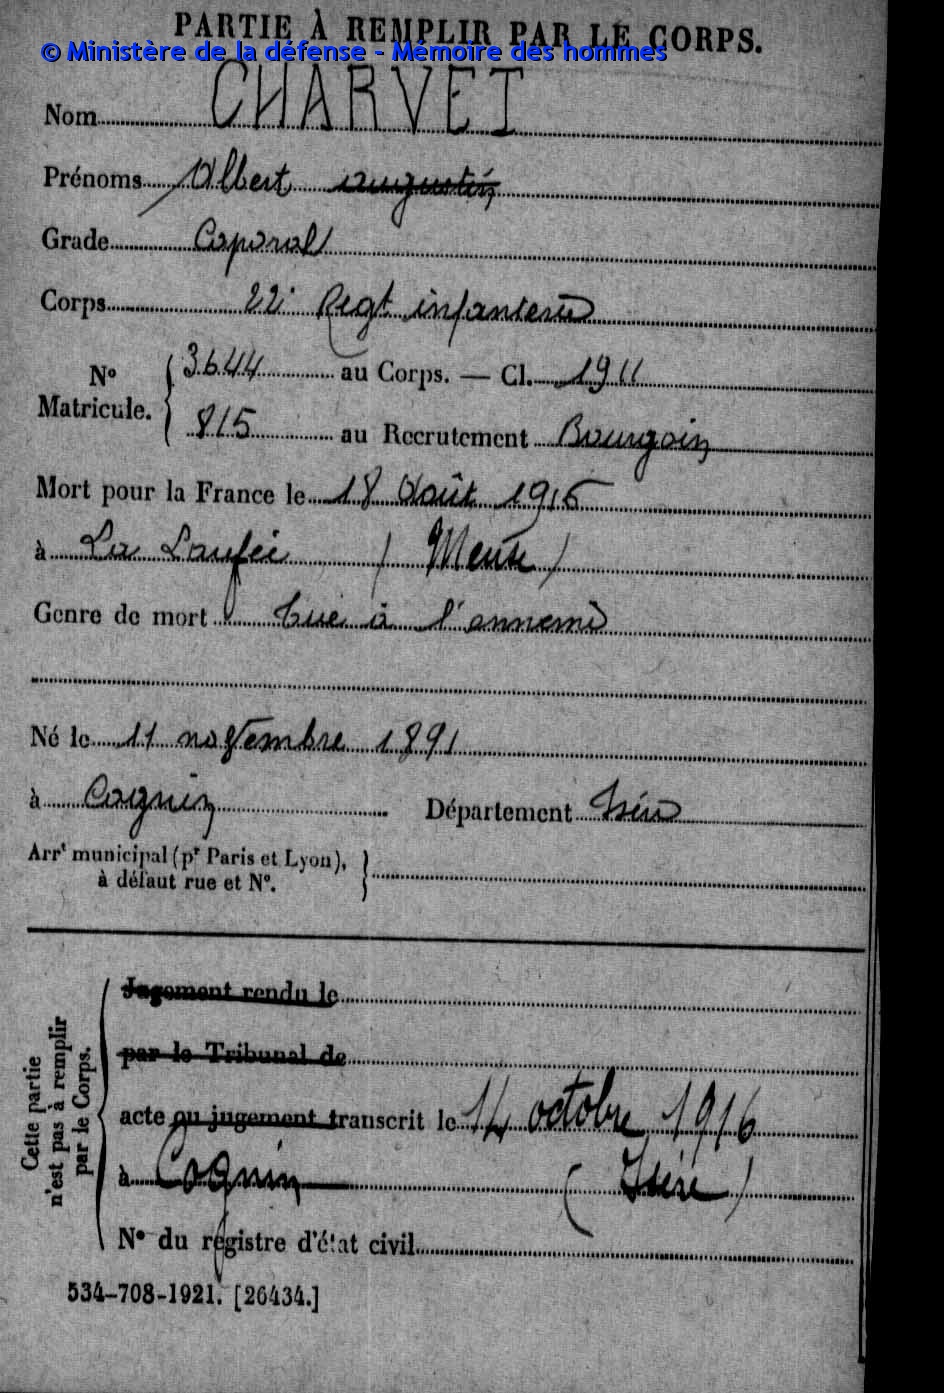 PARTIE À REMPLIR PAR LE CORPS.
© Ministère de la défense - Mémoire des hommes
Nom CHARVET
Prénoms Albert augustin
Grade Caporal
Corps 22e Regt infanterie
N° Matricule. 3644 au Corps. — Cl. 1911
815 au Recrutement Bourgoin
Mort pour la France le 18 Août 1916
à La Laufée (Meuse)
Genre de mort tué à l'ennemi
Né le 11 novembre 1891
à Cognin Département Isère
Arrt municipal (pr Paris et Lyon),
à défaut rue et N°.
Cette partie
n'est pas à remplir
par le Corps.
Jugement rendu le
par le Tribunal de
acte ou jugement transcrit le 14 octobre 1916
à Cognin (Isère)
N° du registre d'état civil
534-708-1921. [26434.]